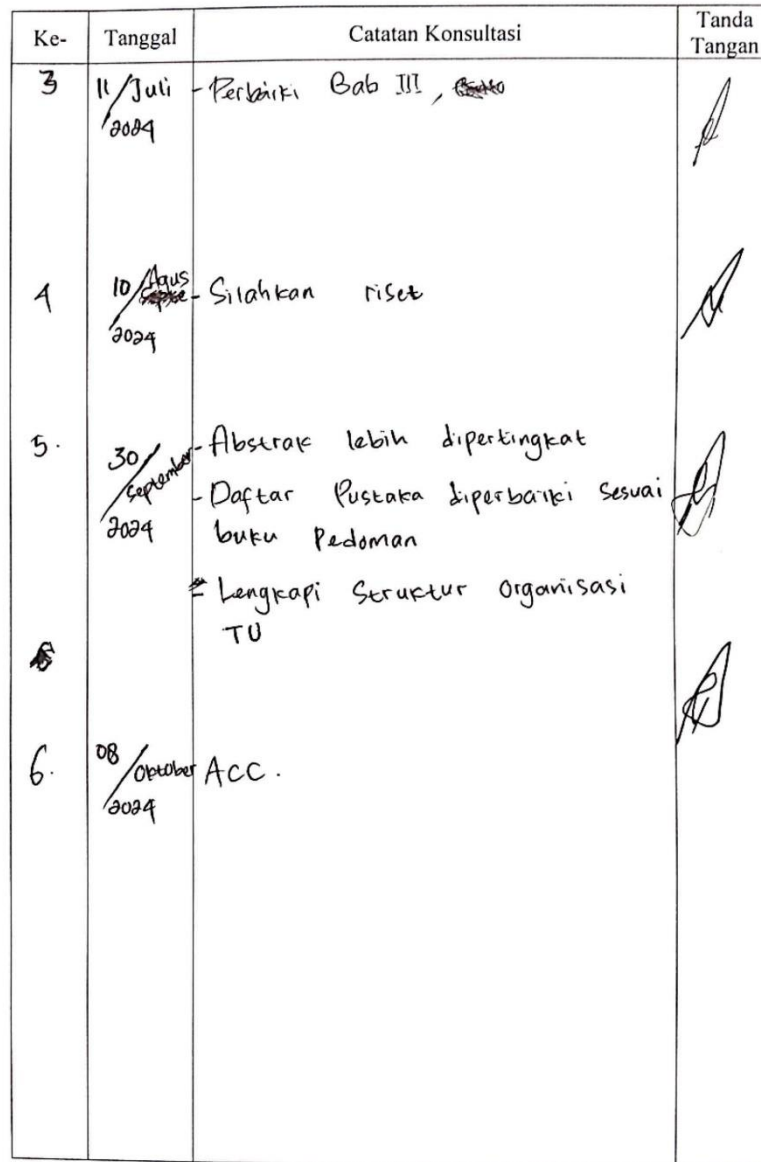 Ke- Tanggal Catatan Konsultasi Tanda Tangan
3 11/Juli - Perbaiki Bab III,
2024
4 10/Agus - Silahkan riset
2024
5. 30/September - Abstrak lebih dipertingkat
2024 - Daftar Pustaka diperbaiki sesuai
buku Pedoman
- Lengkapi Struktur Organisasi
TU
6. 08/Oktober ACC.
2024